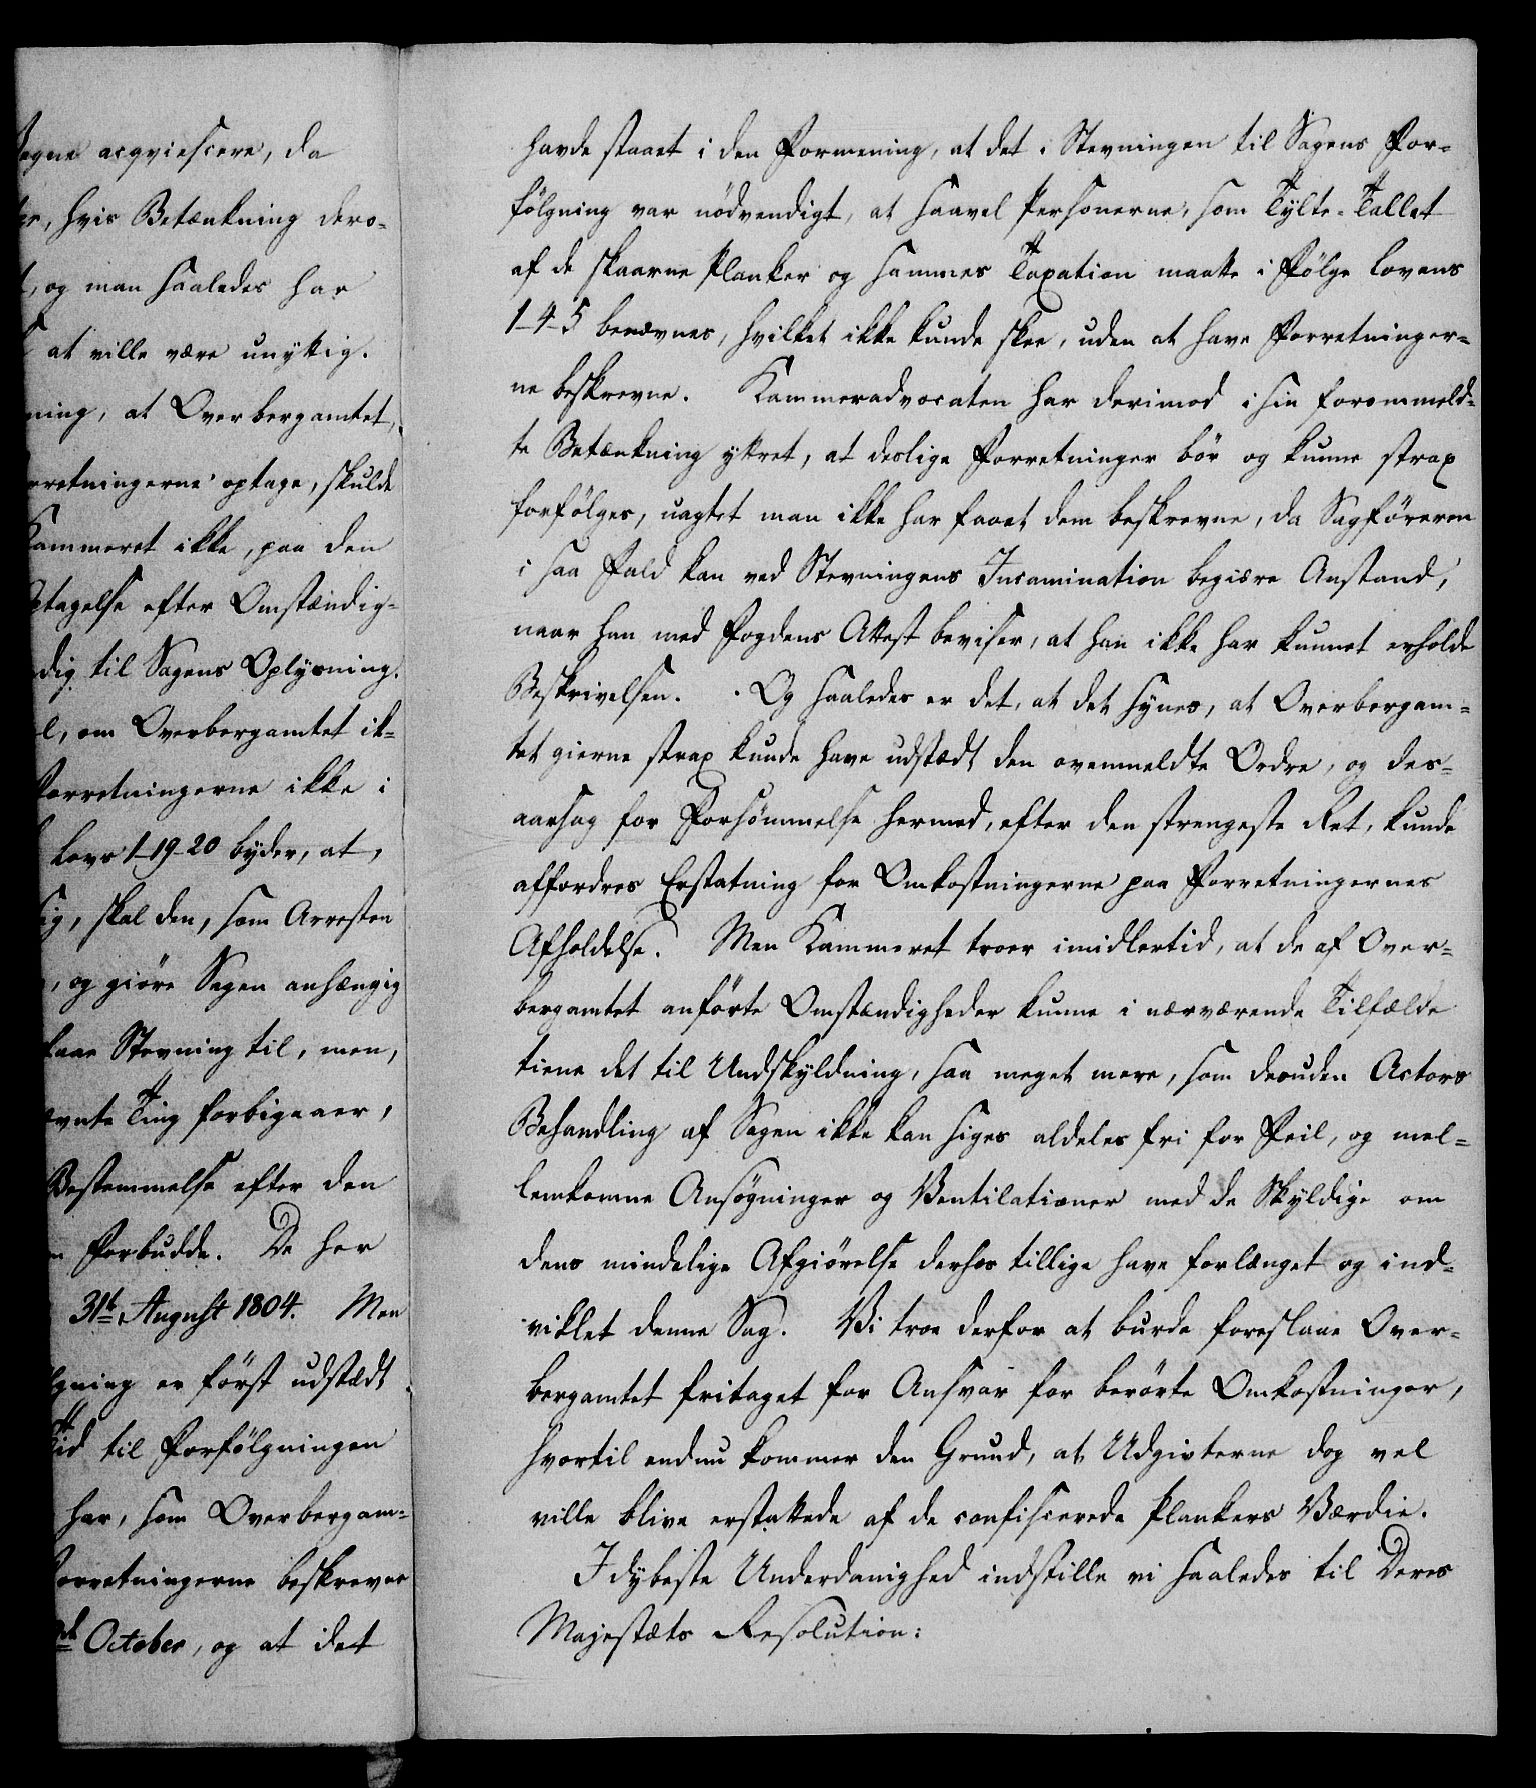 egne acqviescere, da
hvis Betænkning dero-
og man saaledes har
at ville være unyttig.
ning, at Overbergamtet,
rretningerne optage, skulde
Kammeret ikke, paa den
ptagelse efter Omstændig-
dig til Sagens Oplysning.
l, om Overbergamtet ik-
Forretningerne ikke i
Lovs 1-19-20 byder, at,
sig, skal den, som Arresten
, og giöre Sagen anhængig
faae Stevning til, men,
ævnte Ting forbigaaer,
Bestemmelse efter den
n Forbudde. De her
31te August 1804. Men
lgning er först udstædt
Tid til Forfölgningen
har, som Overbergam-
Forretningerne beskrevne
de October, og at det
havde staaet i den Formening, at det i Stevningen til Sagens For-
fölgning var nödvendigt, at saavel Personerne, som Tylte-Tallet
af de skaarne Planker og sammes Taxation maatte i Fölge Lovens
1-4-5 benævnes, hvilket ikke kunde skee, uden at have Forretninger-
ne beskrevne. Kammeradvocaten har derimod i sin forommeld-
te Betænkning yttret, at deslige Forretninger bör og kunne strax
forfölges, uagtet man ikke har faaet dem beskrevne, da Sagföreren
i saa Fald kan ved Stevningens Incamination begiære Anstand,
naar han med Fogdens Attest beviser, at han ikke har kunnet erholde
Beskrivelsen. Og saaledes er det, at det synes, at Overbergam-
tet gierne strax kunde have udstædt den ovenmeldte Ordre, og des-
aarsag for Forsömmelse hermed, efter den strengeste Ret, kunde
affordres Erstatning for Omkostningerne paa Forretningernes
Afholdelse. Men Kammeret troer imidlertid, at de af Over-
bergamtet anförte Omstændigheder kunne i nærværende Tilfælde
tiene det til Undskyldning, saa meget mere, som desuden Actors
Behandling af Sagen ikke kan siges aldeles fri for Feil, og mel-
lemkomne Ansögninger og Ventilationer med de Skyldige om
dens mindelige Afgiörelse derhos tillige have forlænget og ind-
viklet denne Sag. Vi troe derfor at burde foreslaae Over-
bergamtet fritaget for Ansvar for berörte Omkostninger,
hvortil endnu kommer den Grund, at Udgivterne dog vel
ville blive erstattede af de confiscerede Plankers Værdie.
I dybeste Underdanighed indstille vi saaledes til Deres
Majestæts Resolution: